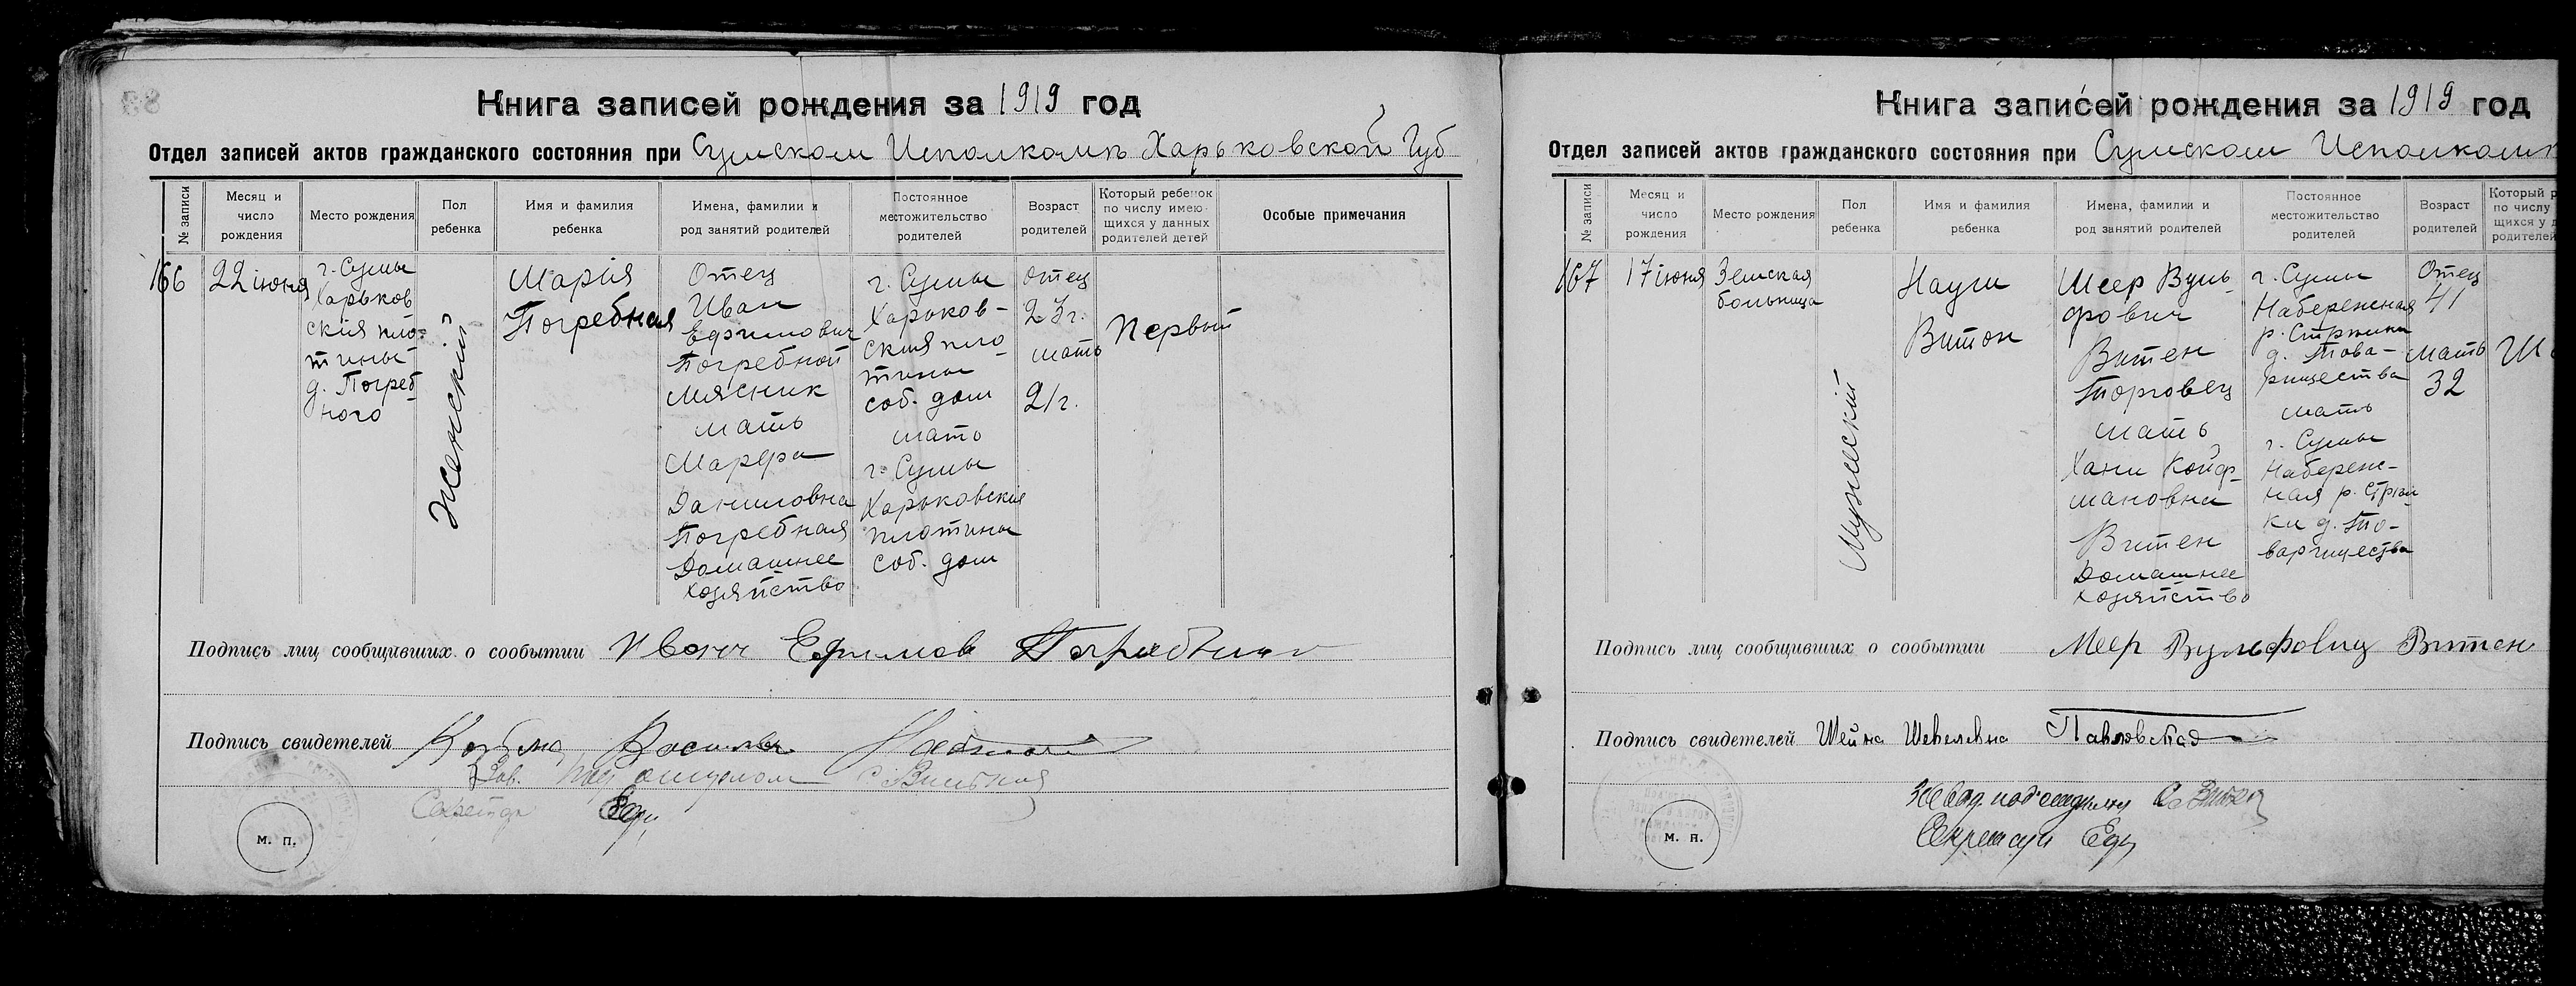 Книга записей рождения за 1919 год
Отдел записей актов гражданского состояния при Сумском Исполкомъ Харьковской Губ
№ записи
Месяц и
число
рождения
Место рождения
Пол
ребенка
Имя и фамилия
ребенка
Имена, фамилии и
род занятий родителей
Постоянное
местожительство
родителей
Возраст
родителей
Который ребенок
по числу имею-
щихся у данных
родителей детей
Особые примечания
166
22 июня
г. Сумы
Харьков
ския пло-
тины
д. Погреб
ного
Женский
Мария
Погребная
Отец
Иван
Ефимович
Погребной
Мясник
мать
Марфа
Даниловна
Погребная
Домашнее
хозяйство
г. Сумы
Харьков-
ския пло-
тины
соб. дом
мать
г. Сумы
Харьковския
плотины
соб. дом
отец
23г.
мать
21г.
Первый
Подпись лиц сообщивших о сообытии Иван Ефимов
Подпись свидетелей
Зав. под отделом
Секретарь
м. п.
Книга записей рождения за 1919 год
Отдел записей актов гражданского состояния при Сумском Исполкомъ
№ записи
Месяц и
число
рождения
Место рождения
Пол
ребенка
Имя и фамилия
ребенка
Имена, фамилии и
род занятий родителей
Постоянное
местожительство
родителей
Возраст
родителей
Который р
по числу
щихся у д
родителей
167
17 июня
Земская
больница
Мужеский
Наум
Витен
Меер Вуль
фович
Витен
Торговец
мать
Хани Койф-
мановна
Витен
Домашнее
хозяйство
г. Сумы
Набережная
р. Стрелки
д. Това-
рищества
мать
г. Сумы
Набереж-
ная р. Стрел-
ки д. То-
варищества
Отец
41
мать
32
Подпись лиц сообщивших о сообытии Меер Вульфовиц Витен
Подпись свидетелей Шейна Шевелевна Павловская
Секретарь
м. п.